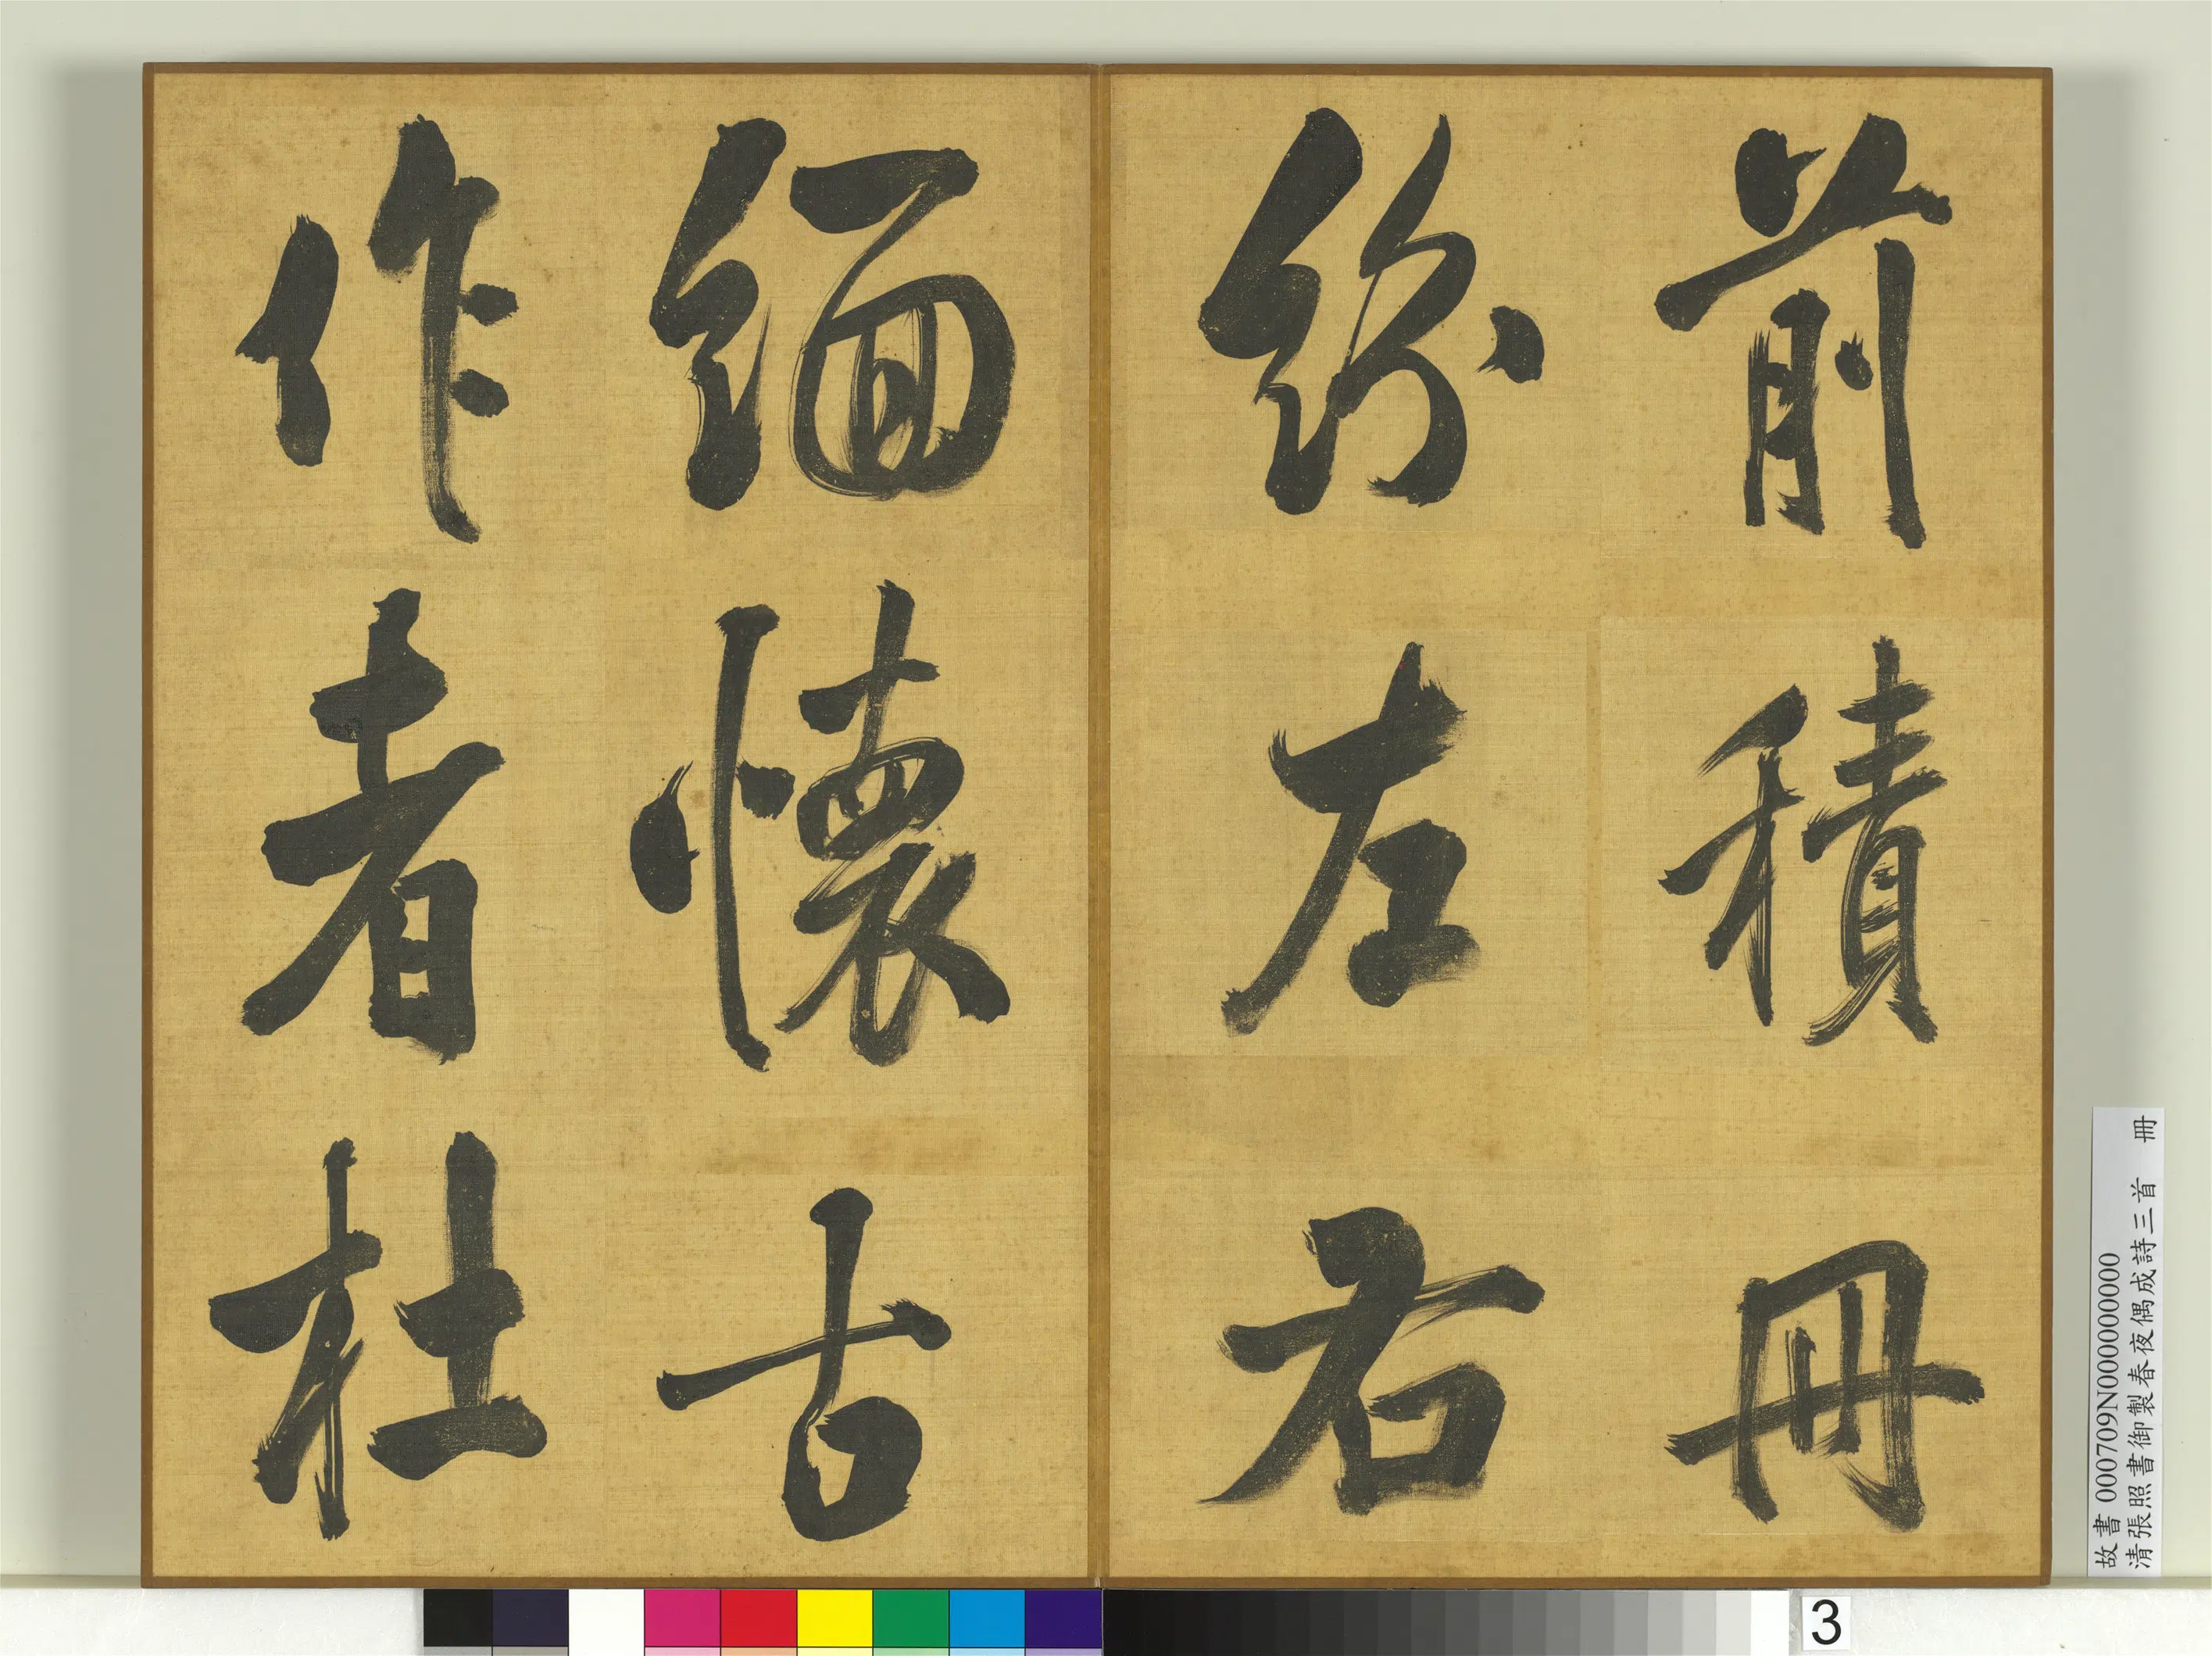 前積冊
紛左右
緬懷古
作者杜
故書 000709N000000000
清張照書御製春夜偶成詩三首 冊
3